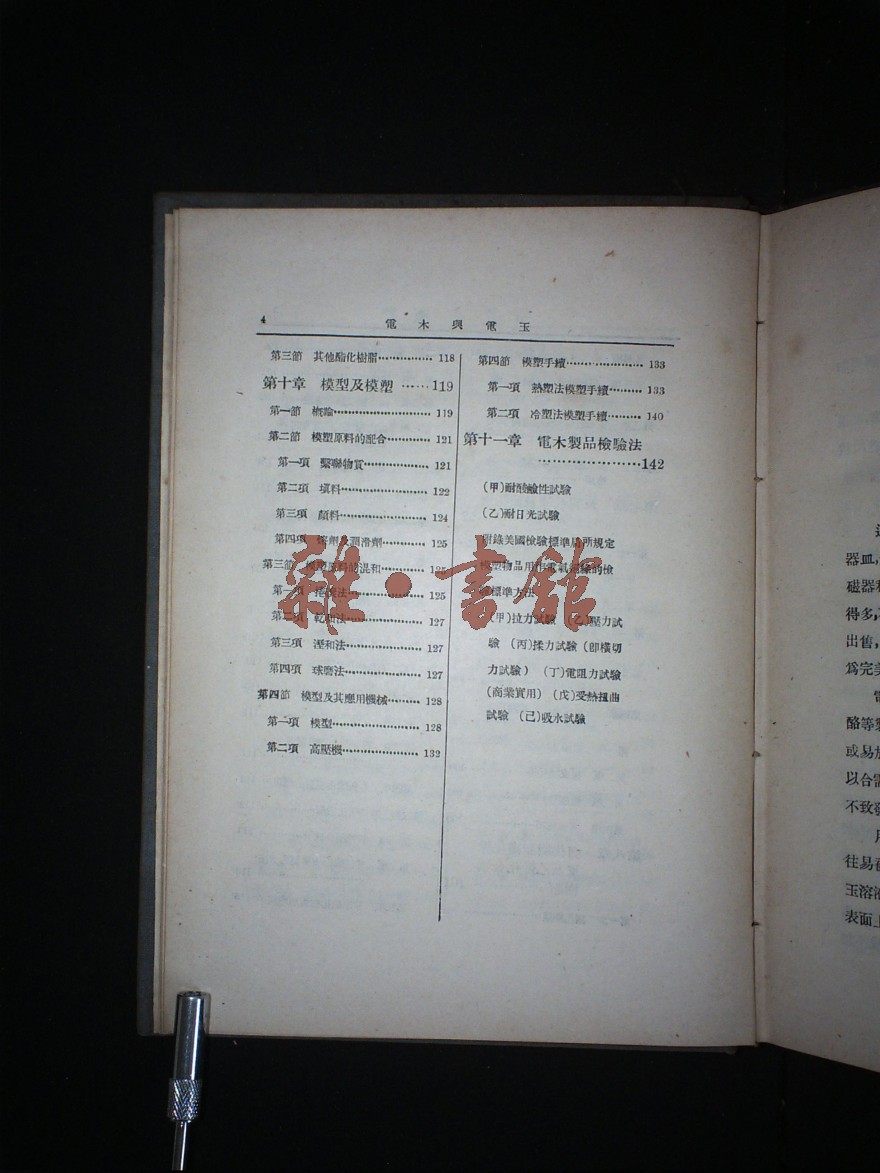 4
電木與電玉
第三節 其他酯化樹脂…………… 118
第十章 模型及模塑 …… 119
第一節 概論…………………… 119
第二節 模塑原料的配合………… 121
第一項 繫聯物質……………… 121
第二項 填料…………………… 122
第三項 顏料…………………… 124
第四項 溶劑及潤滑劑………… 125
第三節 模塑原料的混和………… 125
第一項 法………………… 125
第二項 乾和法………………… 127
第三項 溼和法………………… 127
第四項 球磨法………………… 127
第四節 模型及其應用機械……… 128
第一項 模型…………………… 128
第二項 高壓機………………… 132
第四節 模塑手續………………… 133
第一項 熱塑法模塑手續……… 133
第二項 冷塑法模塑手續……… 140
第十一章 電木製品檢驗法
…………………142
(甲)耐酸鹼性試驗
(乙)耐日光試驗
附錄美國檢驗標準局所規定
模塑物品用作電氣絕緣的檢
驗標準方法
(甲)拉力試驗 (乙)壓力試
驗 (丙)揉力試驗 (即橫切
力試驗) (丁)電阻力試驗
(商業實用) (戊)受熱扭曲
試驗 (己)吸水試驗
雜·書館
器皿,
磁器
得多,
出售,
爲完美
酪等
或易
以合
不致
往易
玉溶液
表面